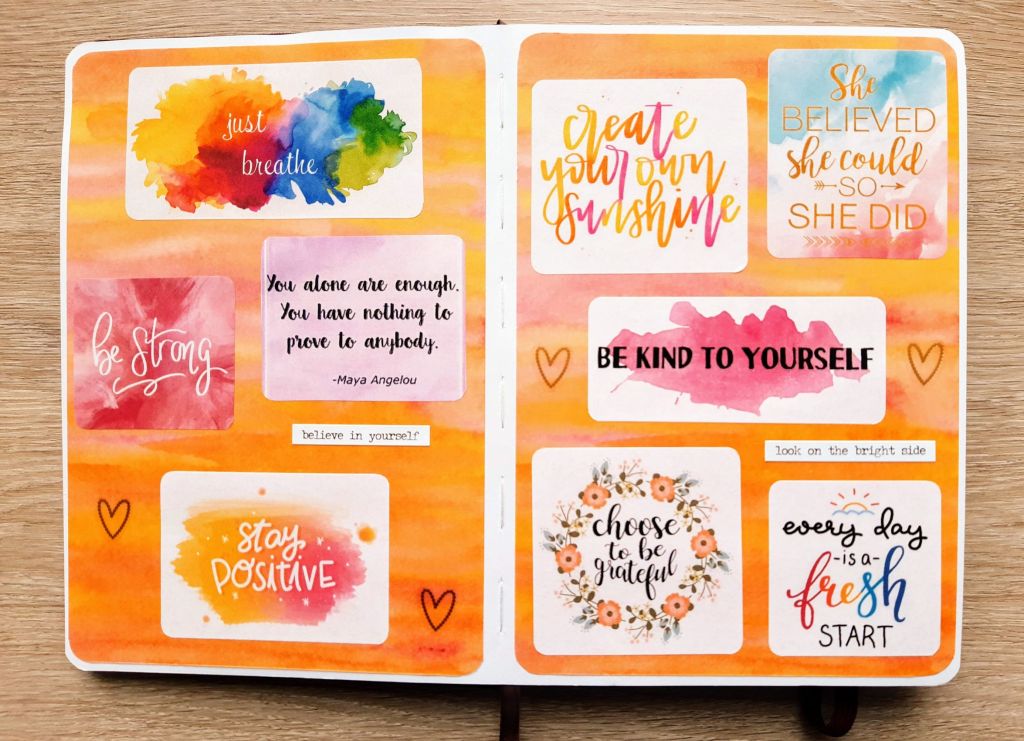 just
breathe
You alone are enough.
You have nothing to
prove to anybody.
-Maya Angelou
be strong
believe in yourself
stay
POSITIVE
create
your own
sunshine
She
BELIEVED
she could
SO
SHE DID
BE KIND TO YOURSELF
look on the bright side
choose
to be
grateful
every day
-is a-
fresh
START